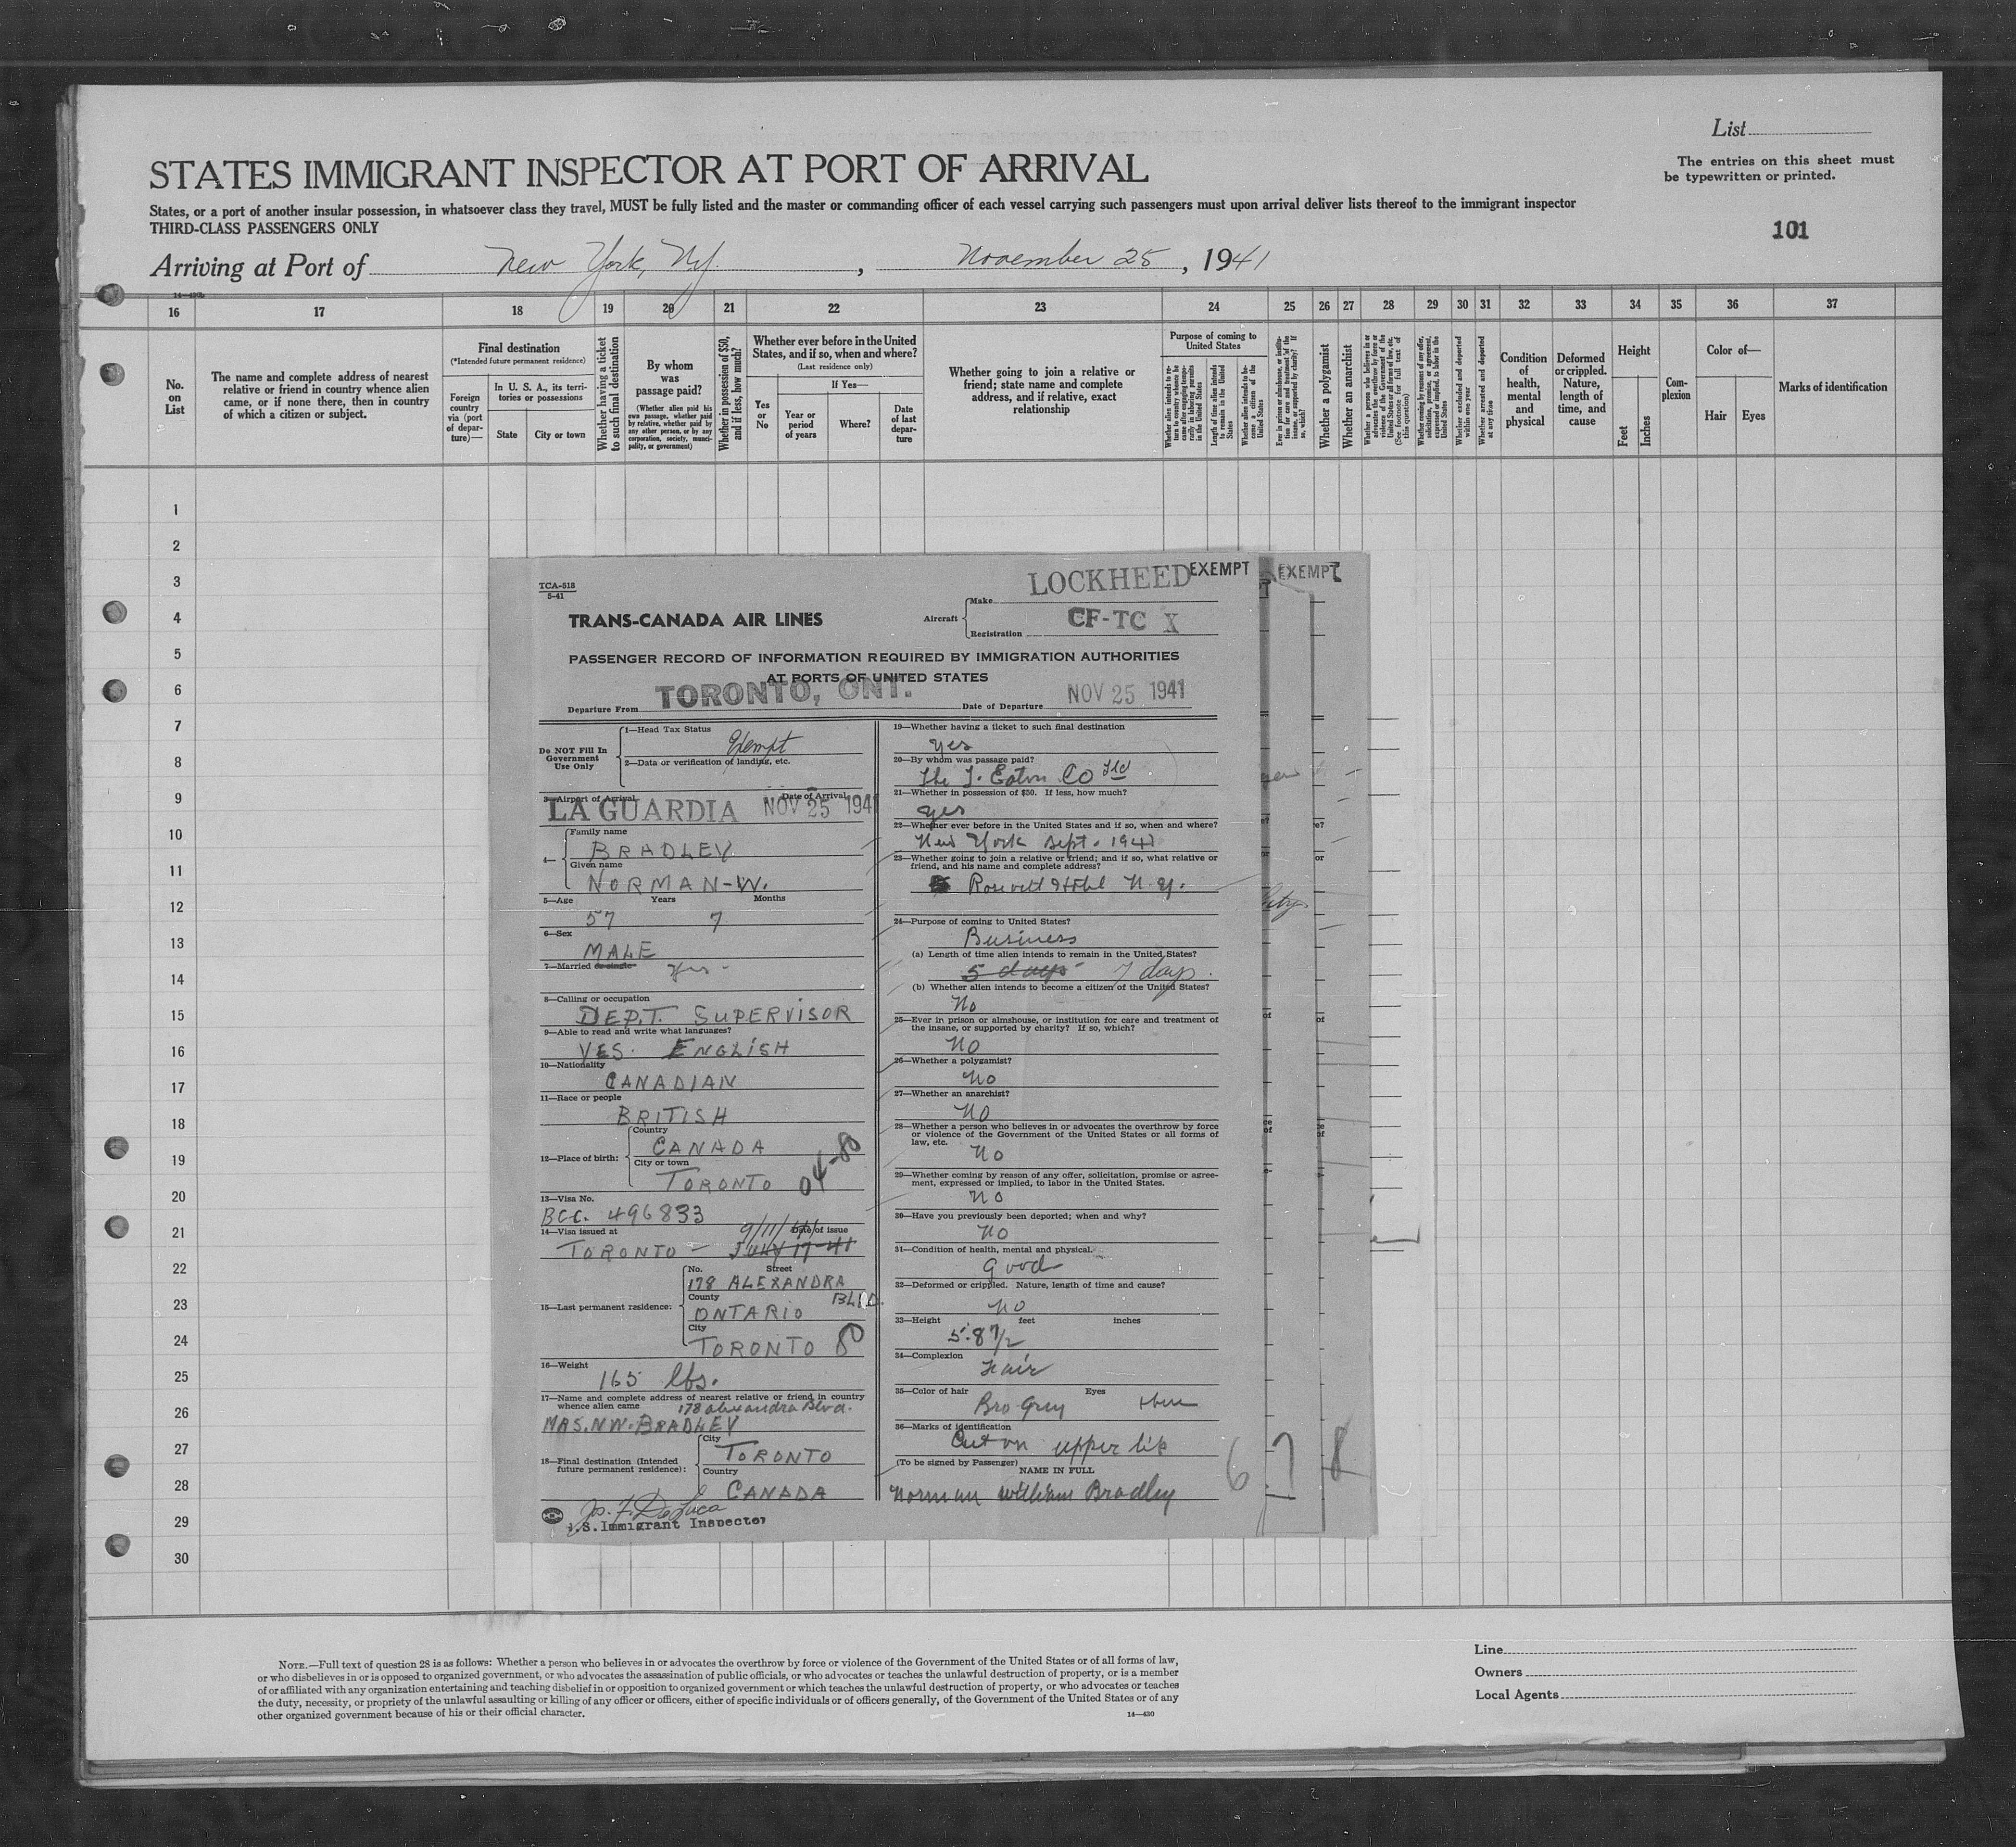 List
STATES IMMIGRANT INSPECTOR AT PORT OF ARRIVAL
The entries on this sheet must
be typewritten or printed.
States, or a port of another insular possession, in whatsoever class they travel, MUST be fully listed and the master or commanding officer of each vessel carrying such passengers must upon arrival deliver lists thereof to the immigrant inspector
THIRD-CLASS PASSENGERS ONLY
101
Arriving at Port of New York, N.Y., November 25, 1941
16 17 18 19 20 21 22 23 24 25 26 27 28 29 30 31 32 33 34 35 36 37
No. on List
The name and complete address of nearest
relative or friend in country whence alien
came, or if none there, then in country
of which a citizen or subject.
Final destination
(*Intended future permanent residence)
Foreign country via (port of departure)—
In U. S. A., its territories or possessions
State
City or town
Whether having a ticket to such final destination
By whom was passage paid?
(Whether alien paid his own passage, whether paid by relative, whether paid by any other person, or by any corporation, society, municipality, or government)
Whether in possession of $50, and if less, how much?
Whether ever before in the United
States, and if so, when and where?
(Last residence only)
Yes or No
If Yes—
Year or period of years
Where?
Date of last departure
Whether going to join a relative or
friend; state name and complete
address, and if relative, exact
relationship
Purpose of coming to United States
Length of time alien intends to remain in the United States
Whether alien intends to become a citizen of the United States
Whether a polygamist
Whether an anarchist
Whether excluded and deported within one year
Whether arrested and deported at any time
Condition of health, mental and physical
Deformed or crippled. Nature, length of time, and cause
Height
Feet
Inches
Complexion
Color of—
Hair
Eyes
Marks of identification
1
2
3
4
5
6
7
8
9
10
11
12
13
14
15
16
17
18
19
20
21
22
23
24
25
26
27
28
29
30
TCA-518
5-41
LOCKHEED EXEMPT EXEMPT
TRANS-CANADA AIR LINES
Aircraft
Make
Registration CF-TC X
PASSENGER RECORD OF INFORMATION REQUIRED BY IMMIGRATION AUTHORITIES
AT PORTS OF UNITED STATES
Departure From TORONTO, ONT. Date of Departure NOV 25 1941
Do NOT Fill In
Government
Use Only
1—Head Tax Status
Exempt
2—Data or verification of landing, etc.
3—Airport of Arrival Date of Arrival
LA GUARDIA NOV 25 1941
4— Family name
BRADLEY
Given name
NORMAN-W.
5—Age Years Months
57 7
6—Sex
MALE
7—Married or single Yes -
8—Calling or occupation
DEPT. SUPERVISOR
9—Able to read and write what languages?
YES. ENGLISH
10—Nationality
CANADIAN
11—Race or people
BRITISH
12—Place of birth:
Country
CANADA
City or town
TORONTO 04-80
13—Visa No.
BCC. 496833
14—Visa issued at Date of issue
9/11/41
TORONTO - JULY 17-41
15—Last permanent residence:
No. Street
178 ALEXANDRA
BLVD.
County
ONTARIO
City
TORONTO
16—Weight
165 lbs.
17—Name and complete address of nearest relative or friend in country
whence alien came 178 Alexandra Blvd.
MRS. N.W. BRADLEY
18—Final destination (Intended
future permanent residence):
City
TORONTO
Country
CANADA
Jos. F. DeLuca
U.S. Immigrant Inspector
19—Whether having a ticket to such final destination
Yes
20—By whom was passage paid?
The T. Eaton Co Ltd
21—Whether in possession of $50. If less, how much?
Yes
22—Whether ever before in the United States and if so, when and where?
New York Sept. 1941
23—Whether going to join a relative or friend; and if so, what relative or
friend, and his name and complete address?
Rosevelt Hotel N.Y.
24—Purpose of coming to United States?
Business
(a) Length of time alien intends to remain in the United States?
5 days 7 days.
(b) Whether alien intends to become a citizen of the United States?
No
25—Ever in prison or almshouse, or institution for care and treatment of
the insane, or supported by charity? If so, which?
No
26—Whether a polygamist?
No
27—Whether an anarchist?
No
28—Whether a person who believes in or advocates the overthrow by force
or violence of the Government of the United States or all forms of
law, etc.
No
29—Whether coming by reason of any offer, solicitation, promise or agree-
ment, expressed or implied, to labor in the United States.
No
30—Have you previously been deported; when and why?
No
31—Condition of health, mental and physical.
Good
32—Deformed or crippled. Nature, length of time and cause?
No
33—Height feet inches
5.8 1/2
34—Complexion
Fair
35—Color of hair Eyes
Bro-Grey
36—Marks of identification
Cut on upper lip
(To be signed by Passenger)
NAME IN FULL
Norman William Bradley
6 7 8
NOTE.—Full text of question 28 is as follows: Whether a person who believes in or advocates the overthrow by force or violence of the Government of the United States or of all forms of law,
or who disbelieves in or is opposed to organized government, or who advocates the assassination of public officials, or who advocates or teaches the unlawful destruction of property, or is a member
of or affiliated with any organization entertaining and teaching disbelief in or opposition to organized government or which teaches the unlawful destruction of property, or who advocates or teaches
the duty, necessity, or propriety of the unlawful assaulting or killing of any officer or officers, either of specific individuals or of officers generally, of the Government of the United States or of any
other organized government because of his or their official character.
14—430
Line
Owners
Local Agents